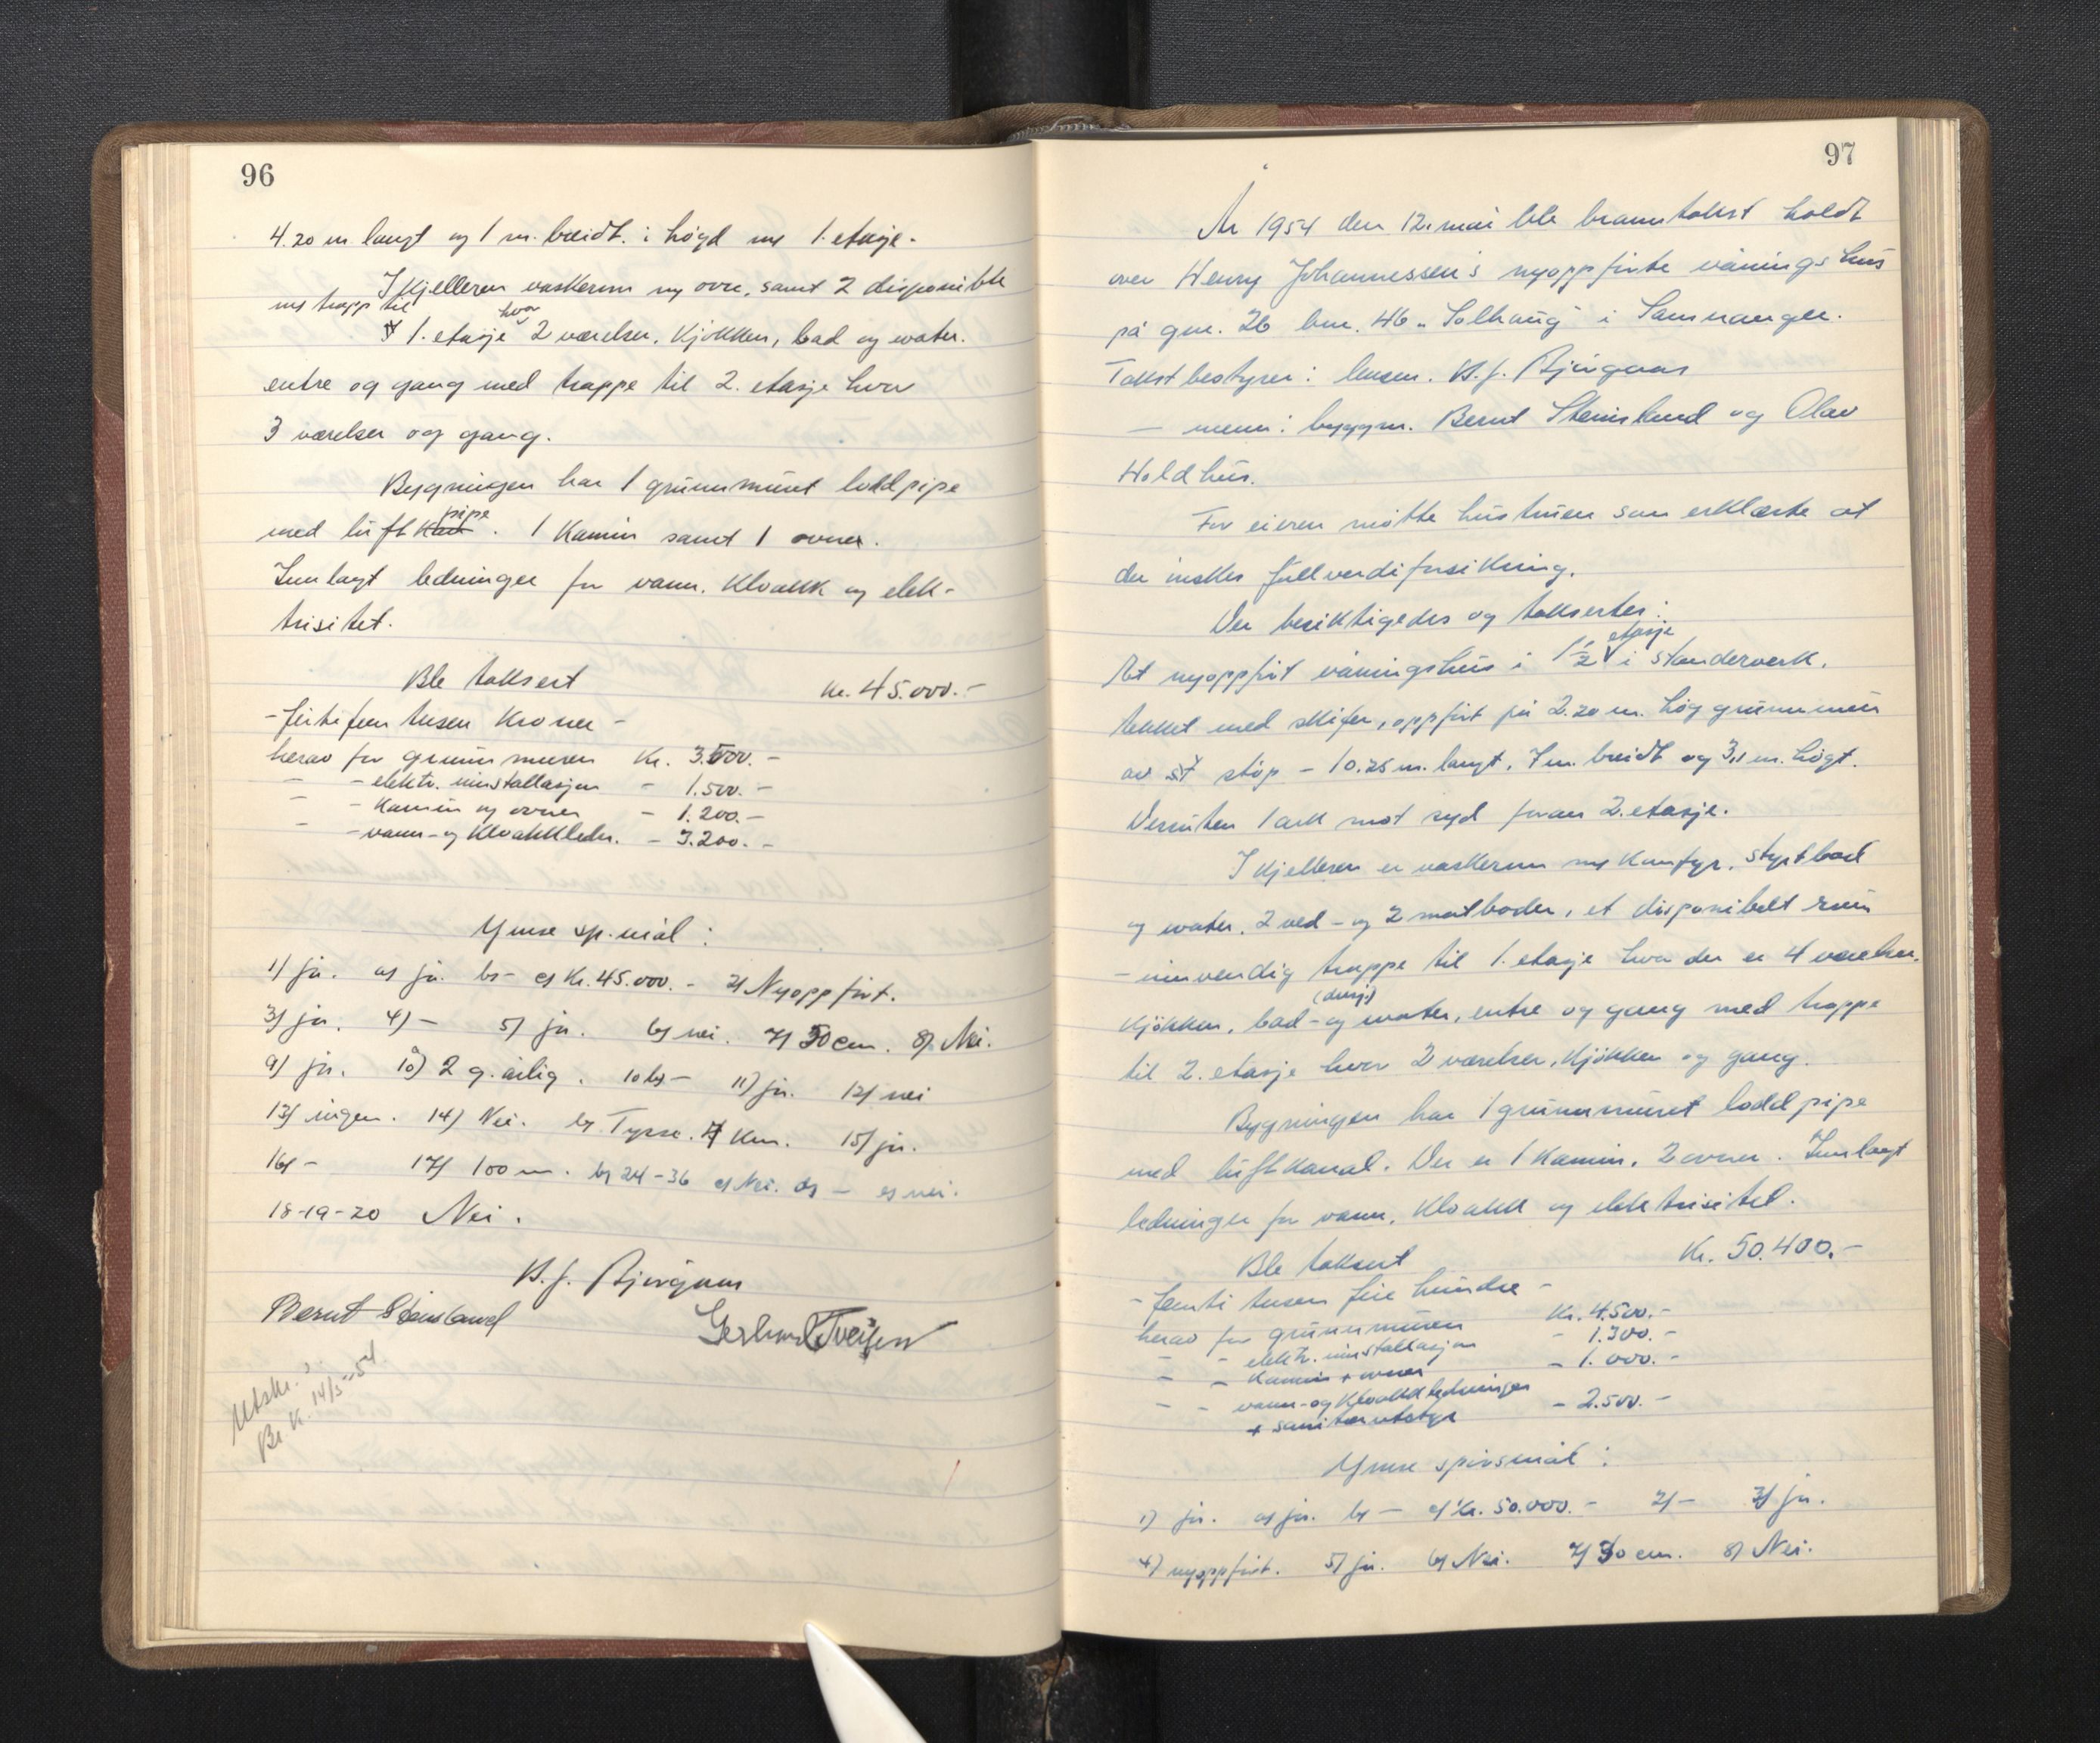 96
4.20 m langt og 1 m. breidt. i höyd m/ 1. etasje.
I kjelleren vaskerom m/ ovn, samt 2 disponible
m/ trapp til
1. etasje hvor 2 værelser, kjökken, bad og water.
entre og gang med trappe til 2. etasje hvor
3 værelser og gang.
Bygningen har 1 grunnmuret loddpipe
med luftpipe. 1 Kamin samt 1 ovner.
Innlagt ledninger for vann, kloakk og elek-
trisitet.
Ble taksert Kr. 45.000.-
- förtifem tusen kroner -
herav for grunnmuren Kr. 3.500.-
- - elektr. innstallasjon - 1.500.-
- - Kamin og ovner - 1.200.-
- - vann- og kloakkledn. - 3.200.-
Ymse sp.mål:
1) ja. a) ja. b) - c) Kr. 45.000.- 2) Nyoppfört.
3) ja. 4) - 5) ja. 6) nei. 7) 30 cm. 8) Nei.
9) ja. 10) 2 g. årlig. 10 b) - 11) ja. 12) nei
13) ingen. 14) Nei. b) Tysse. 7 km. 15) ja.
16) - 17) 100 m. b) 24-36 c) Nei. d) - e) nei.
18-19-20 Nei.
Bernt Steinsland
Gerhard Tveiten
Utskr.
Br. k. 14/5-54
97
År 1954 den 12. mai ble branntakst holdt
over Henry Johannessen's nyoppförte våningshus
på gnr. 26 bnr. 46 "Solhaug" i Samnanger.
Takstbestyrer: lensm.
- menn: byggm. Bernt Steinsland og Olav
Holdhus.
For eieren mötte hustruen som erklærte at
der önskes fullverdiforsikring.
Der besiktigedes og taksertes:
Et nyoppfört våningshus i 1 1/2 etasje i standerverk,
tekket med skifer, oppfört på 2.20 m. hög grunnmur
av støp - 10.25 m. langt, 7 m. breidt og 3,1 m. högt.
Dessuten 1 ark mot syd foran 2. etasje.
I kjelleren er vaskerom m/ komfyr, styrtbad
og water, 2 ved- og 2 matboder, et disponibelt rum
- innvendig trappe til 1. etasje hvor der er 4 værelser,
kjökken, bad- (dusj) og water, entre og gang med trappe
til 2. etasje hvor 2 værelser, kjökken og gang.
Bygningen har 1 grunnmuret loddpipe
med luftkanal. Der er 1 Kamin, 2 ovner. Innlagt
ledninger for vann, kloakk og elektrisitet.
Ble taksert Kr. 50.400.-
- femti tusen fire hundre -
herav for grunnmuren Kr. 4.500.-
- - elektr. innstallasjon - 1.300.-
- - Kamin + ovner - 1.000.-
- - vann- og kloakkledninger
+ sanitærutstyr - 2.500.-
Ymse spörsmål:
1) ja. a) ja. b) - c) Kr. 50.000.- 2) - 3) ja.
4) nyoppfört. 5) ja. 6) Nei. 7) 30 cm. 8) Nei.